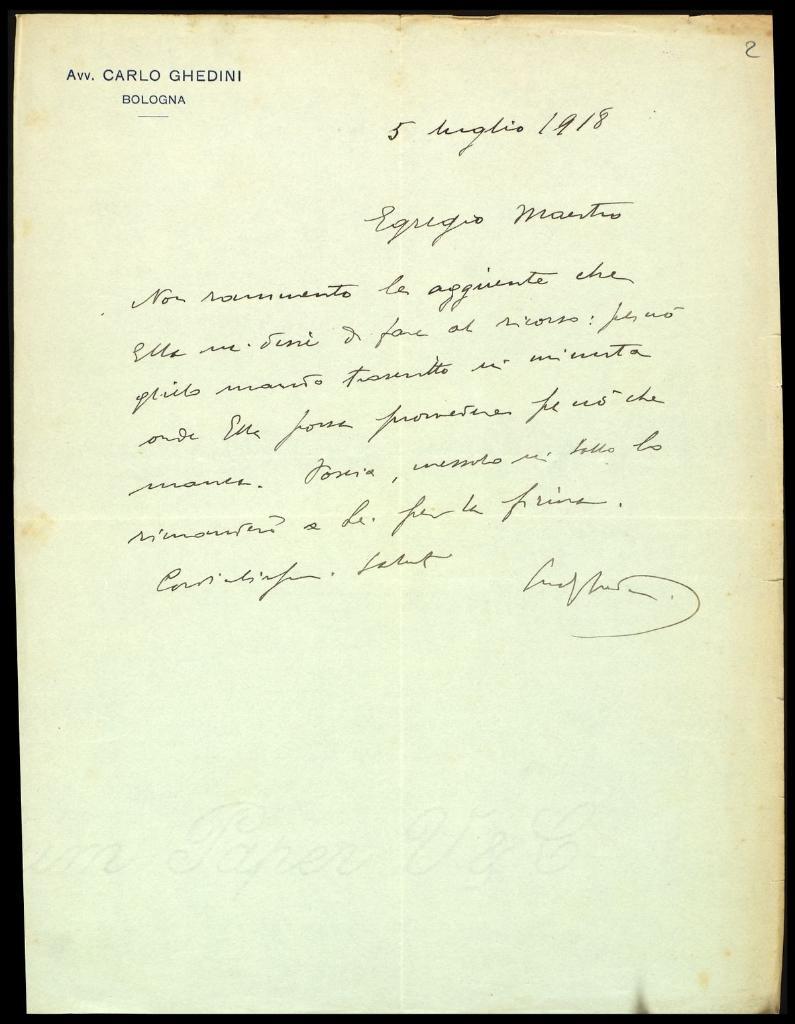 2
Avv. CARLO GHEDINI
BOLOGNA
5 luglio 1918
Egregio Maestro
Non rammento le aggiunte che
Ella mi disse di fare al ricorso: perciò
glielo mando trascritto in minuta
onde Ella possa provvedere per ciò che
manca. Poscia, messolo in bollo lo
rimanderò a Lei per la firma.
Cordialissimi Saluti
Paper